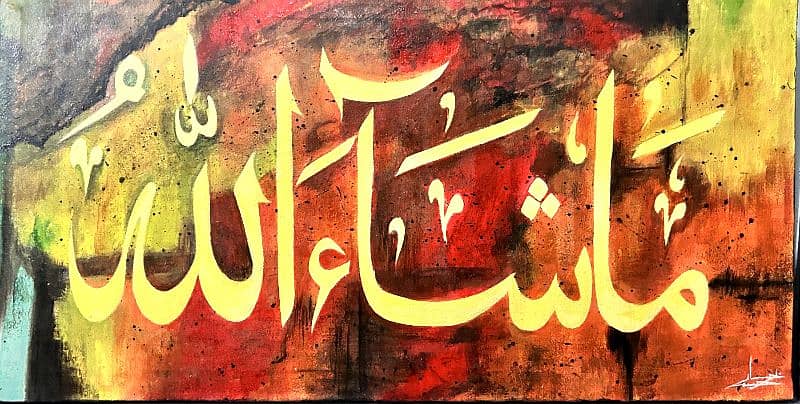 مَاشَآءَاللّٰهُ